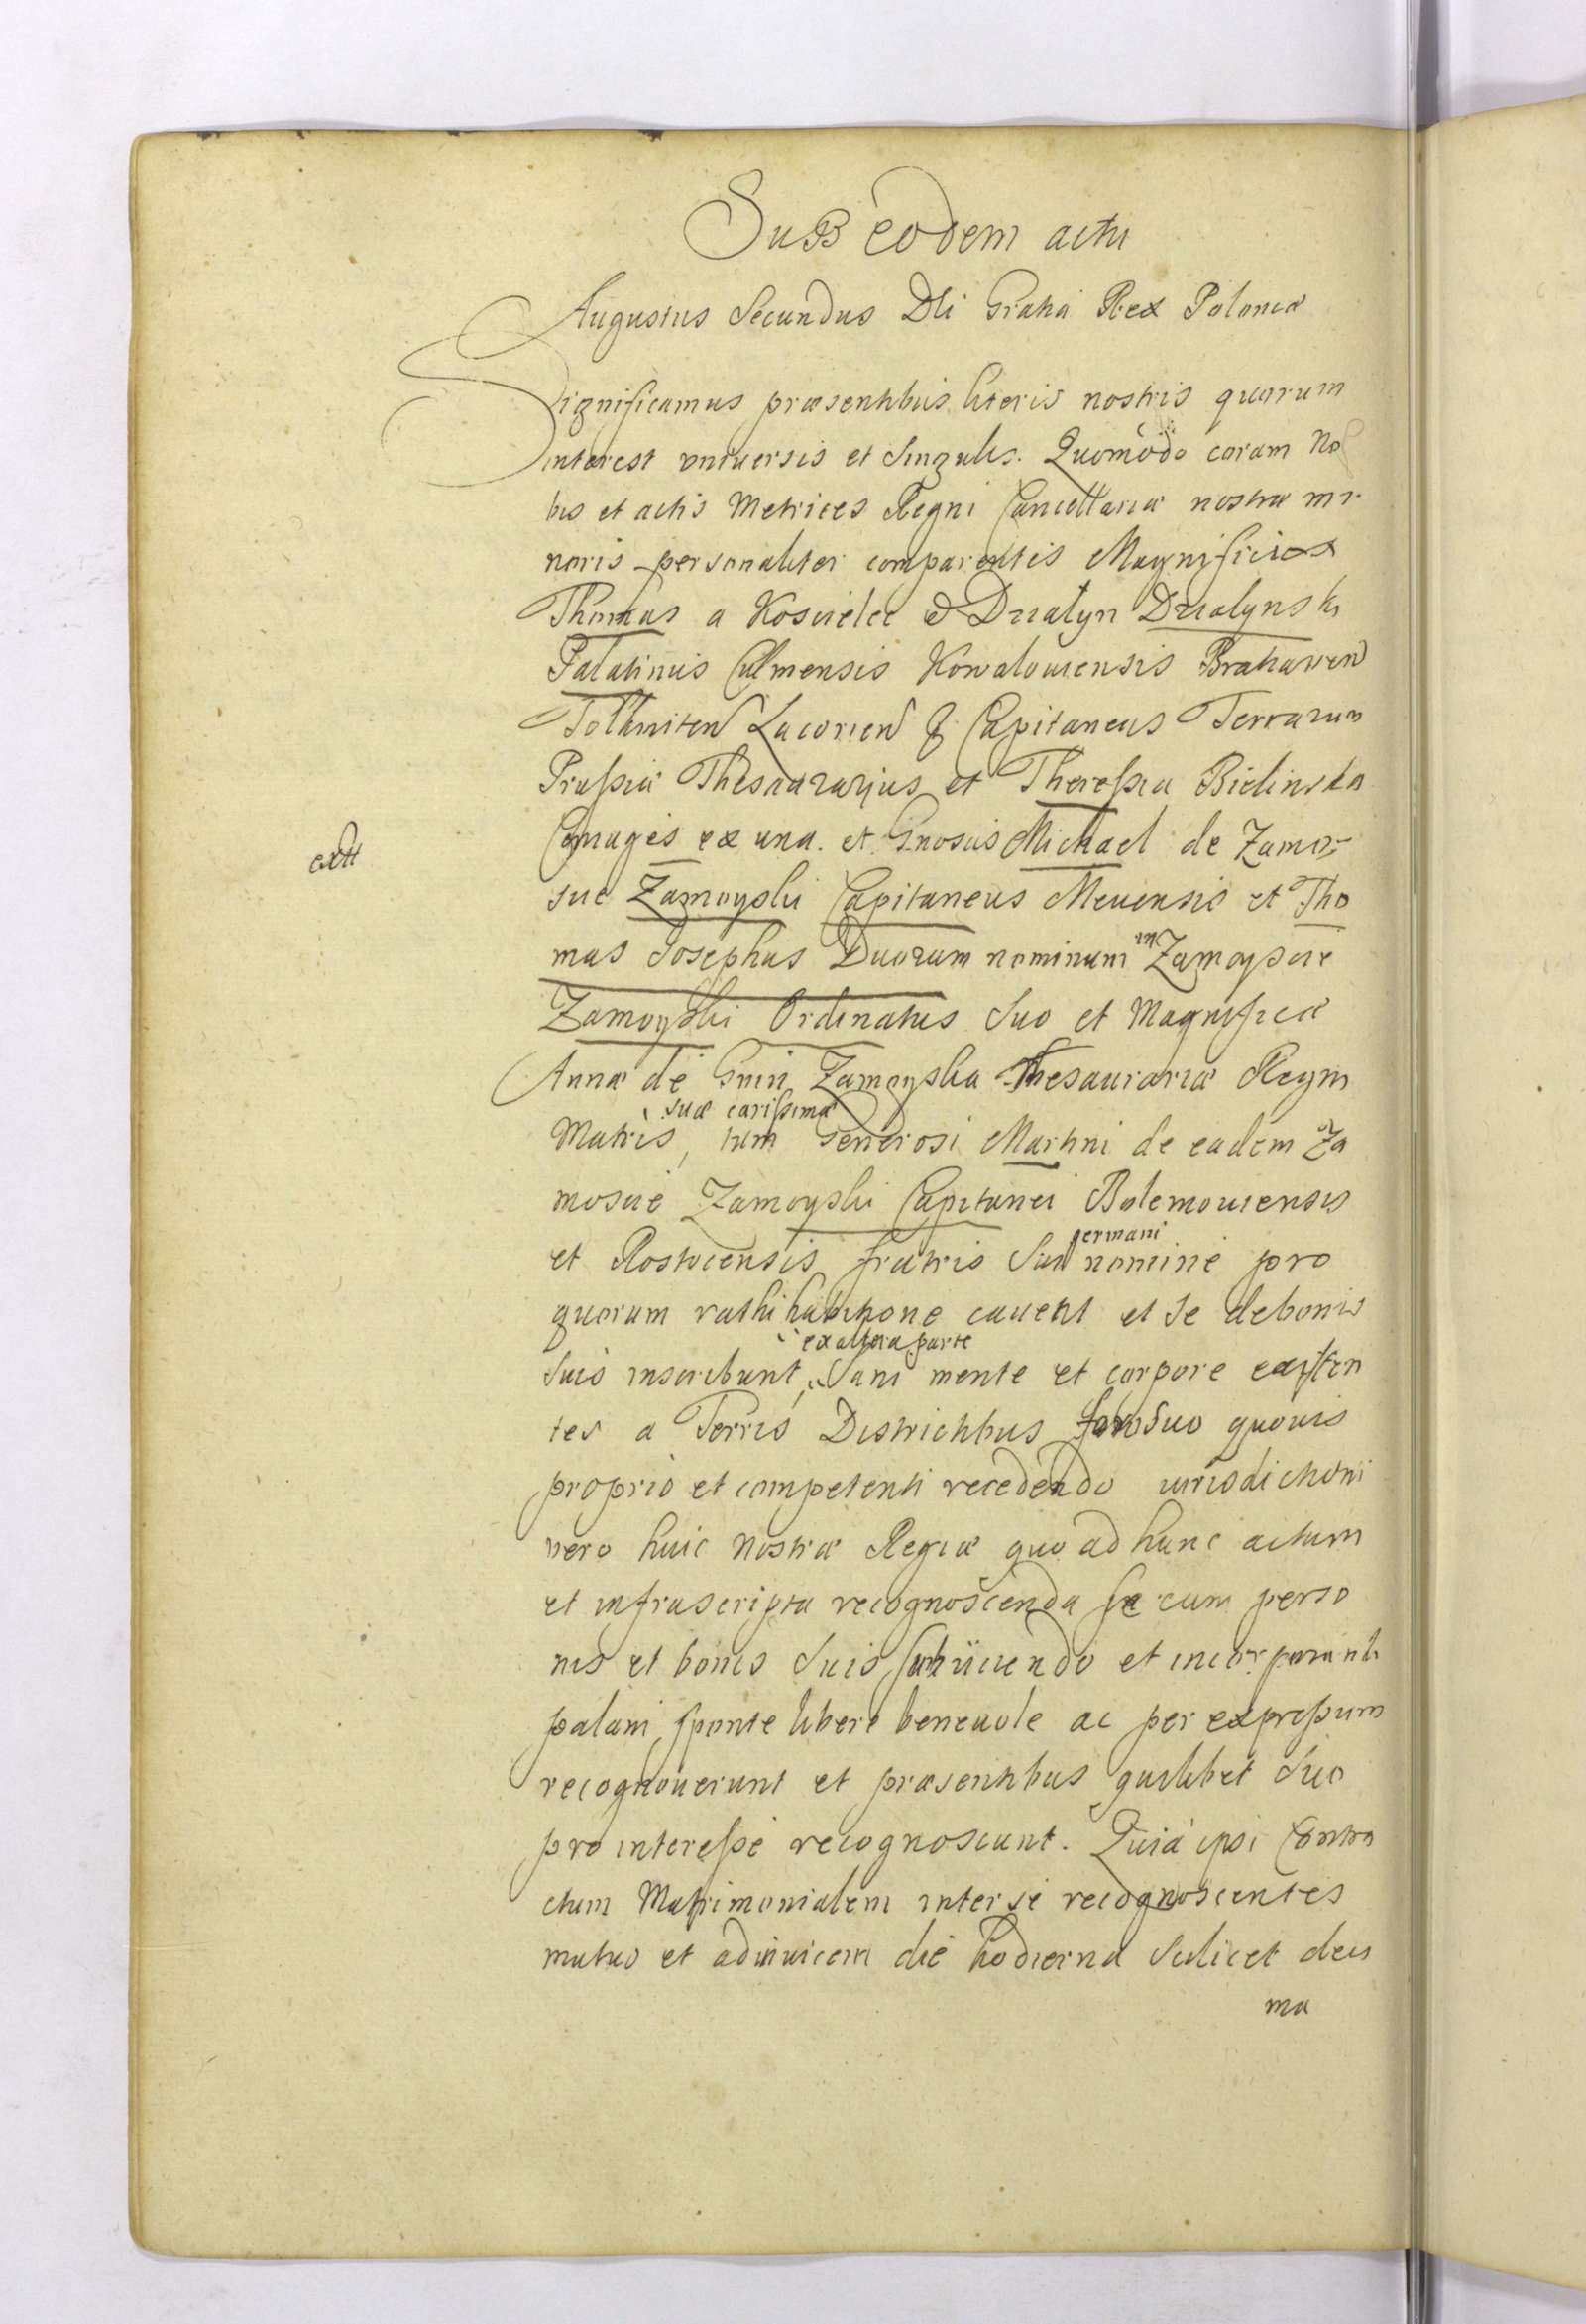 SuB eodem actu
Augustus Secundus Dei Gratia Rex Poloniæ
Significamus præsentibus literis nostris quorum
interest universis et singulis. Quomodo coram No
bis et actis Metrices Regni Cancellariæ nostræ mi-
noris personaliter comparentes Magnificus
Thomas a Koscielec & Dzialyn Dzialynski
Palatinus Culmensis Kowaloviensis Bratianen
Tolkmiten Lacorien & Capitaneus Terrarum
Prussiæ Thesaurarius et Theressia Bielinska
extt
Coniuges ex una. et Gnosus Michael de Zamo-
scie Zamoyski Capitaneus Mevensis et Tho
mas Josephus Duorum nominum in Zamoyscie
Zamoyski Ordinatus Suo et Magnificæ
Annæ de Gnin Zamoyska Thesaurariæ Regni
Matris suæ carissimæ, tum Generosi Martini de eadem Za
moscie Zamoyski Capitanei Bolemoviensis
et Rostocensis fratris Sui germani nomine pro
quorum rathihabitione cavent et se de bonis
suis inscribunt, ex altera parte Sani mente et corpore existen
tes a Terris Districtibus foro suo quovis
proprio et competenti recedendo iurisdictioni
vero huic nostræ Regiæ quo ad hunc actum
et infrascripta recognoscenda se cum perso
nis et bonis suis subiiciendo et incorporanti
palam sponte libere benevole ac per expressum
recognoverunt et præsentibus quilibet suo
pro interesse recognoscunt. Quia ipsi Contra
ctum Matrimonialem inter se recognoscentes
mutuo et adinvicem die hodierna scilicet deci
ma